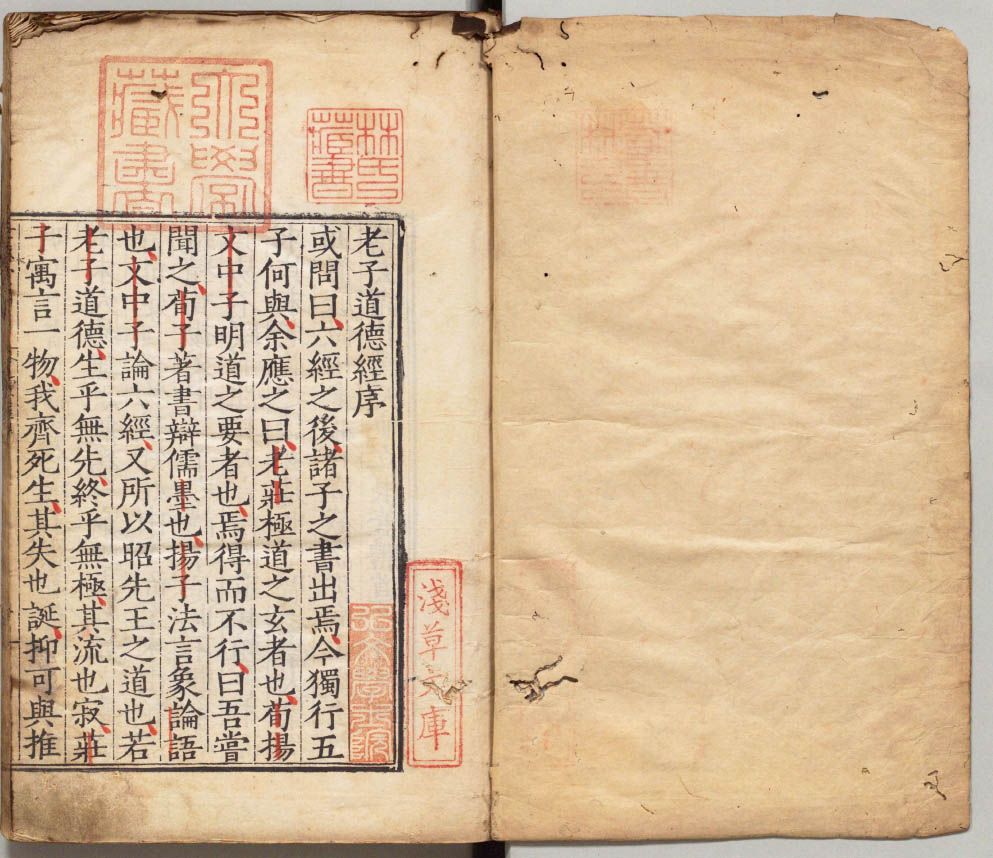 老子道德經序
或問曰六經之後諸子之書出焉今獨行五
子何與余應之曰老莊極道之玄者也荀揚
文中子明道之要者也焉得而不行曰吾嘗
聞之荀子著書辯儒墨也揚子法言象論語
也文中子論六經又所以昭先王之道也若
老子道德生乎無先終乎無極其流也寂莊
子寓言一物我齊死生其失也誕抑可與推
淺草文庫
林氏
藏書
藏書